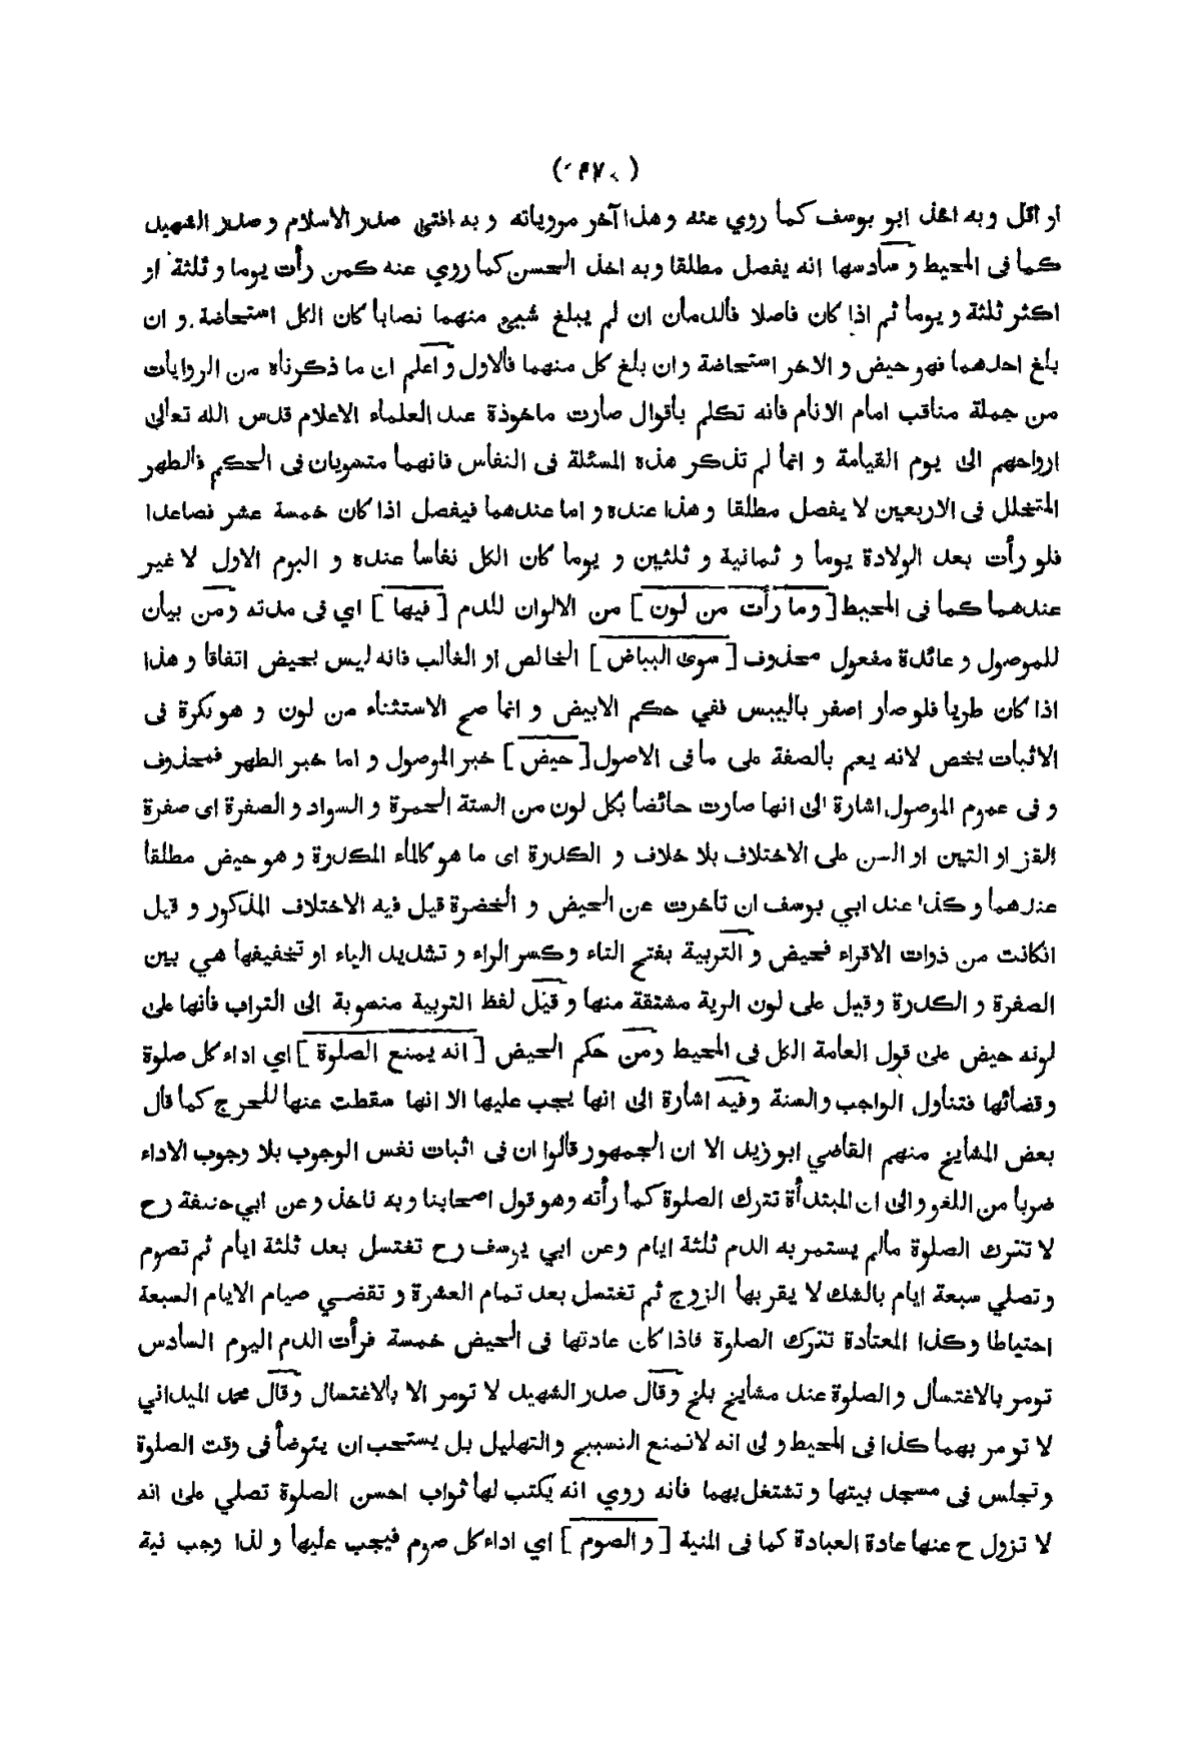 او اقل و به اخذ ابو يوسف كما روي عنه و هذا آخر مروياته و به افتى صدر الاسلام و صدر الشهيد
كما فى المحيط و سادسها انه يفصل مطلقا وبه اخذ الحسن كما روي عنه كمن رأت يوما و ثلثة او
اكثر ثلثة و يوما ثم اذا كان فاصلا فالدمان ان لم يبلغ شيئ منهما نصابا كان الكل استحاضة و ان
بلغ احدهما فهو حيض و الاخر استحاضة و ان بلغ كل منهما فالاول و اعلم ان ما ذكرناه من الروايات
من جملة مناقب امام الانام فانه تكلم باقوال صارت ماخوذة عند العلماء الاعلام قدس الله تعالى
ارواحهم الى يوم القيامة و انما لم تذكر هذه المسئلة فى النفاس فانهما متسويان فى الحكم فالطهر
المتخلل فى الاربعين لا يفصل مطلقا و هذا عنده و اما عندهما فيفصل اذا كان خمسة عشر فصاعدا
فلو رأت بعد الولادة يوما و ثمانية و ثلثين و يوما كان الكل نفاسا عنده و اليوم الاول لا غير
عندهما كما فى المحيط [ وما رأت من لون ] من الالوان للدم [ فيها ] اي فى مدته ومن بيان
للموصول و عائدة مفعول محذوف [ سوى البياض ] الخالص او الغالب فانه ليس بحيض اتفاقا و هذا
اذا كان طريا فلو صار اصفر باليبس ففي حكم الابيض و انما صح الاستثناء من لون و هو نكرة فى
الاثبات يخص لانه يعم بالصفة على ما فى الاصول [ حيض ] خبر الموصول و اما خبر الطهر فمحذوف
و فى عموم الموصول اشارة الى انها صارت حائضا بكل لون من الستة الحمرة و السواد و الصفرة اى صفرة
القز او التبن او السن على الاختلاف بلا خلاف و الكدرة اى ما هو كالماء المكدرة و هو حيض مطلقا
عندهما و كذا عند ابي يوسف ان تاخرت عن الحيض و الخضرة قيل فيه الاختلاف المذكور و قيل
انكانت من ذوات الاقراء فحيض و التربية بفتح التاء و كسر الراء و تشديد الياء او تخفيفها هي بين
الصفرة و الكدرة وقيل على لون الرية مشتقة منها و قيل لفظ التربية منسوبة الى التراب فانها على
لونه حيض على قول العامة الكل فى المحيط ومن حكم الحيض [ انه يمنع الصلوة ] اي اداء كل صلوة
و قضائها فتناول الواجب والسنة وفيه اشارة الى انها يجب عليها الا انها سقطت عنها للحرج كما قال
بعض المشايخ منهم القاضي ابو زيد الا ان الجمهور قالوا ان فى اثبات نفس الوجوب بلا وجوب الاداء
ضربا من اللغو والى ان المبتدأة تترك الصلوة كما رأته وهو قول اصحابنا وبه ناخذ و عن ابي حنيفة رح
لا تترك الصلوة مالم يستمر به الدم ثلثة ايام وعن ابي يوسف رح تغتسل بعد ثلثة ايام ثم تصوم
و تصلي سبعة ايام بالشك لا يقربها الزوج ثم تغتسل بعد تمام العشرة و تقضي صيام الايام السبعة
احتياطا وكذا المعتادة تترك الصلوة فاذا كان عادتها فى الحيض خمسة فرأت الدم اليوم السادس
تومر بالاغتسال و الصلوة عند مشايخ بلخ وقال صدر الشهيد لا تومر الا بالاغتسال وقال محمد الميداني
لا تومر بهما كذا فى المحيط و الى انه لا تمنع التسبيح والتهليل بل يستحب ان يتوضأ فى وقت الصلوة
و تجلس فى مسجد بيتها و تشتغل بهما فانه روي انه يكتب لها ثواب احسن الصلوة تصلي على انه
لا تزول ح عنها عادة العبادة كما فى المنية [ و الصوم ] اي اداء كل صوم فيجب عليها و لذا وجب نية